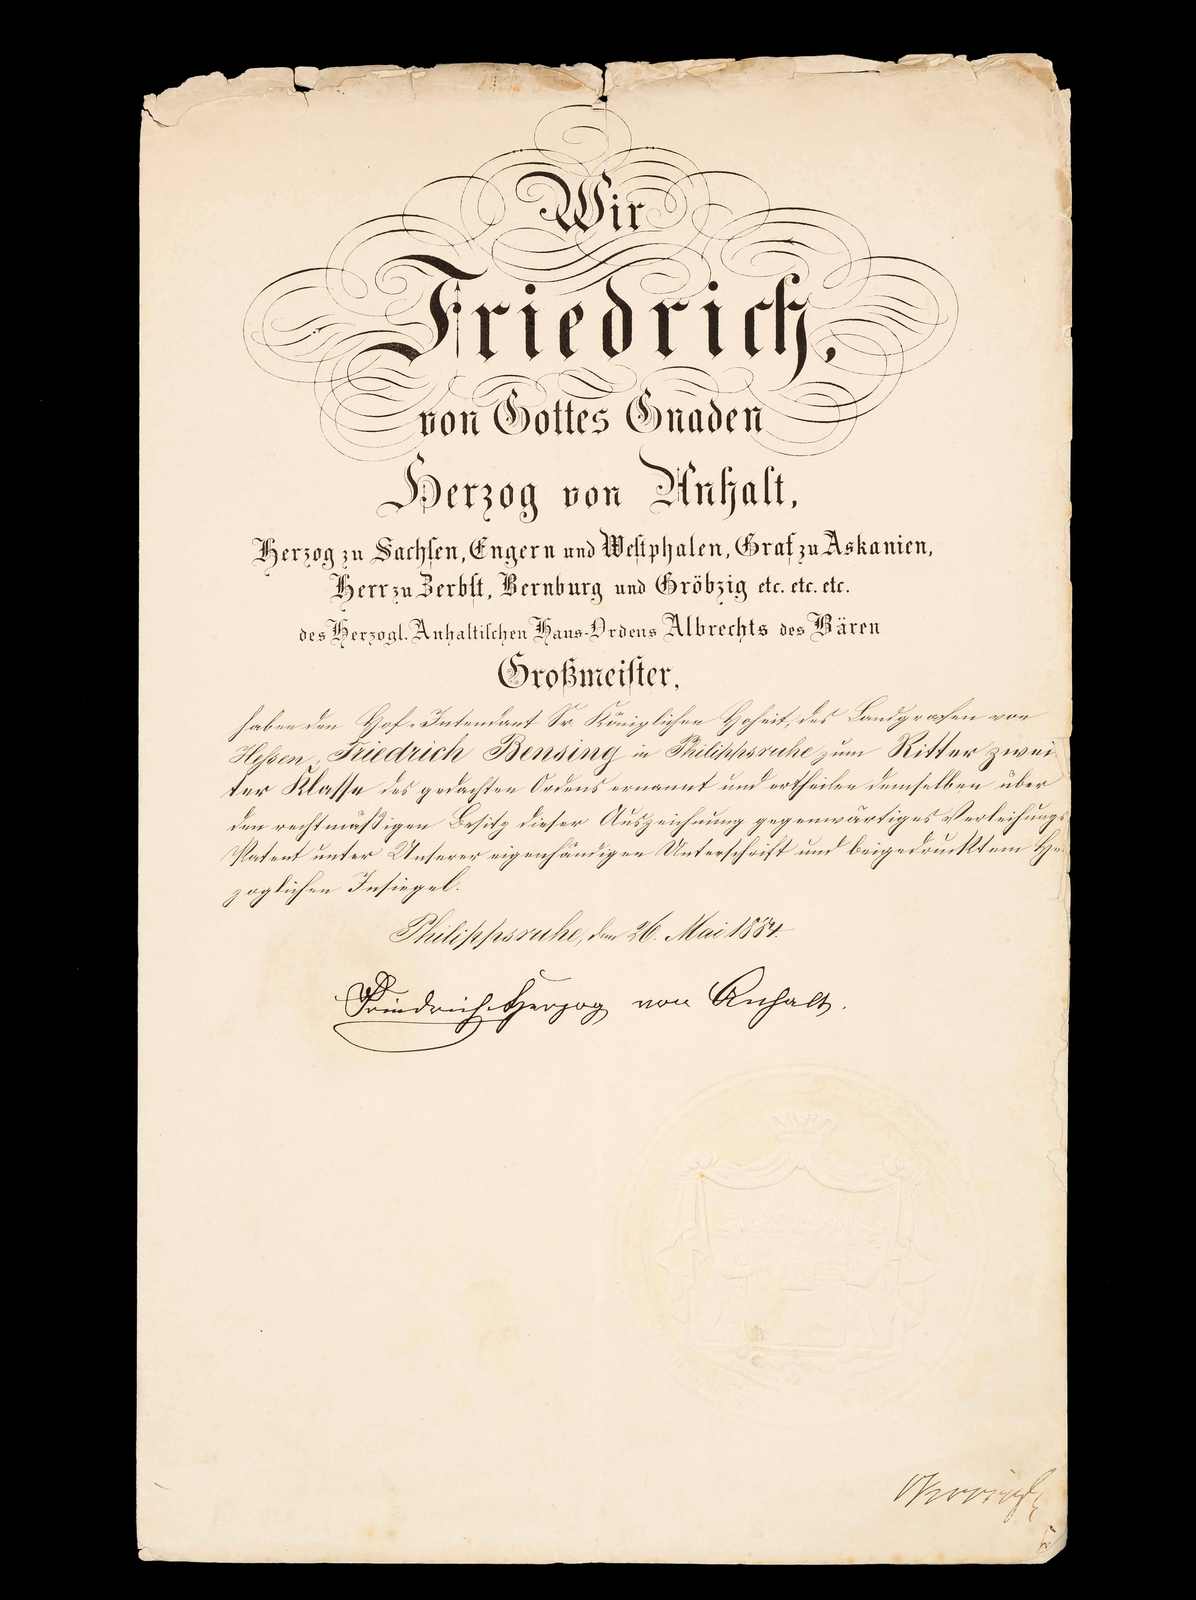 Wir
Friedrich,
von Gottes Gnaden
Herzog von Anhalt,
Herzog zu Sachsen, Engern und Westphalen, Graf zu Askanien,
Herr zu Zerbst, Bernburg und Gröbzig etc. etc. etc.
des Herzogl. Anhaltischen Haus-Ordens Albrechts des Bären
Großmeister,
haben den Hof-Intendant Sr. Königlichen Hoheit, des Landgrafen von
Hessen, Friedrich Bensing in Philippsruhe zum Ritter zwei-
ter Klasse des gedachten Ordens ernannt und ertheilen demselben über
den rechtmäßigen Besitz dieser Auszeichnung gegenwärtiges Verleihungs-
Patent unter Unserer eigenhändigen Unterschrift und beigedrucktem Her-
zoglichen Insiegel.
Philippsruhe, den 26. Mai 1884.
Friedrich Herzog von Anhalt.